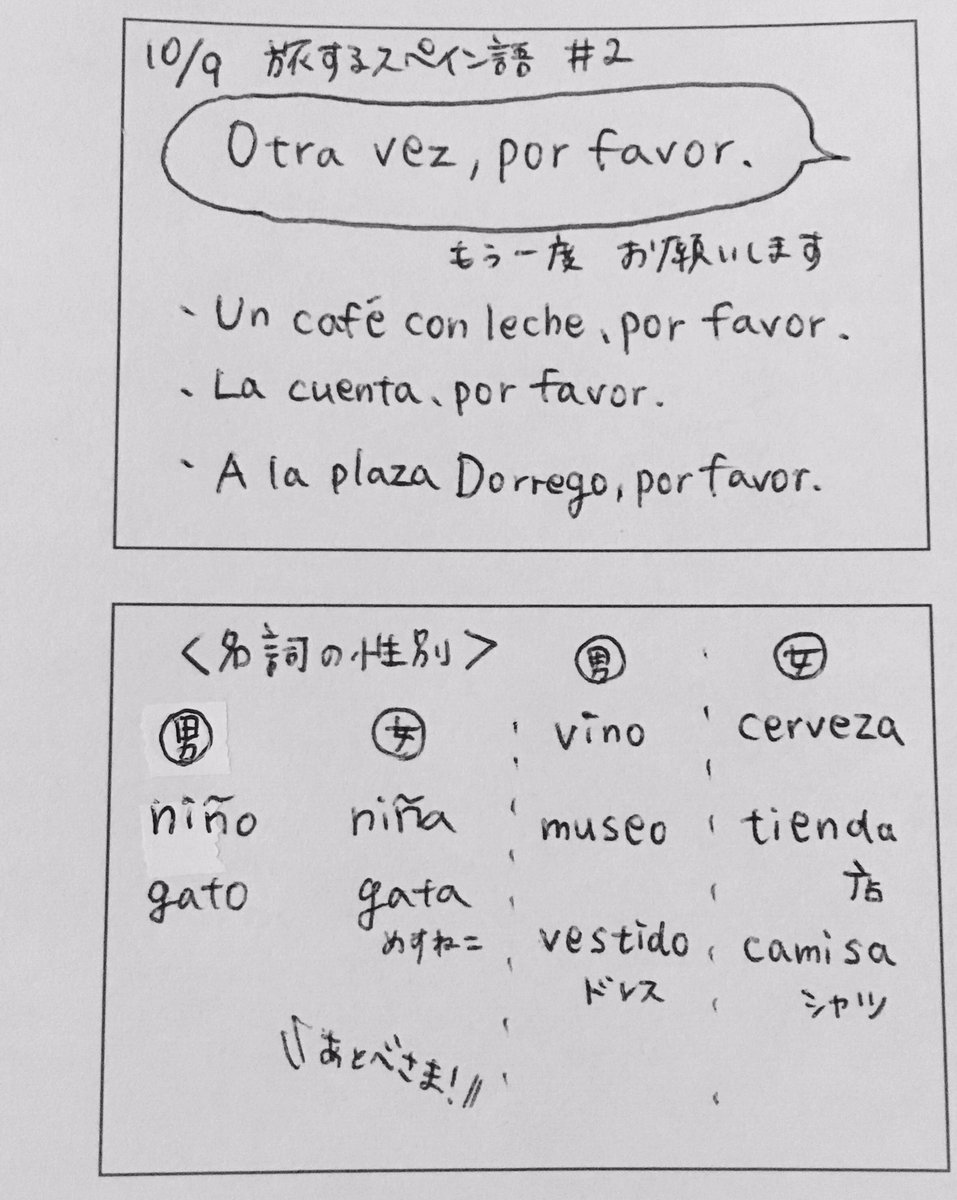 10/9 旅するスペイン語 #2
Otra vez, por favor.
もう一度 お願いします
、Un café con leche、por favor.
、La cuenta、por favor.
、A la plaza Dorrego, por favor.
<名詞の性別> 男 女
男 女 vino cerveza
niño niña museo tienda
店
gato gata vestido camisa
めすねこ ドレス シャツ
\\あとべさま!//